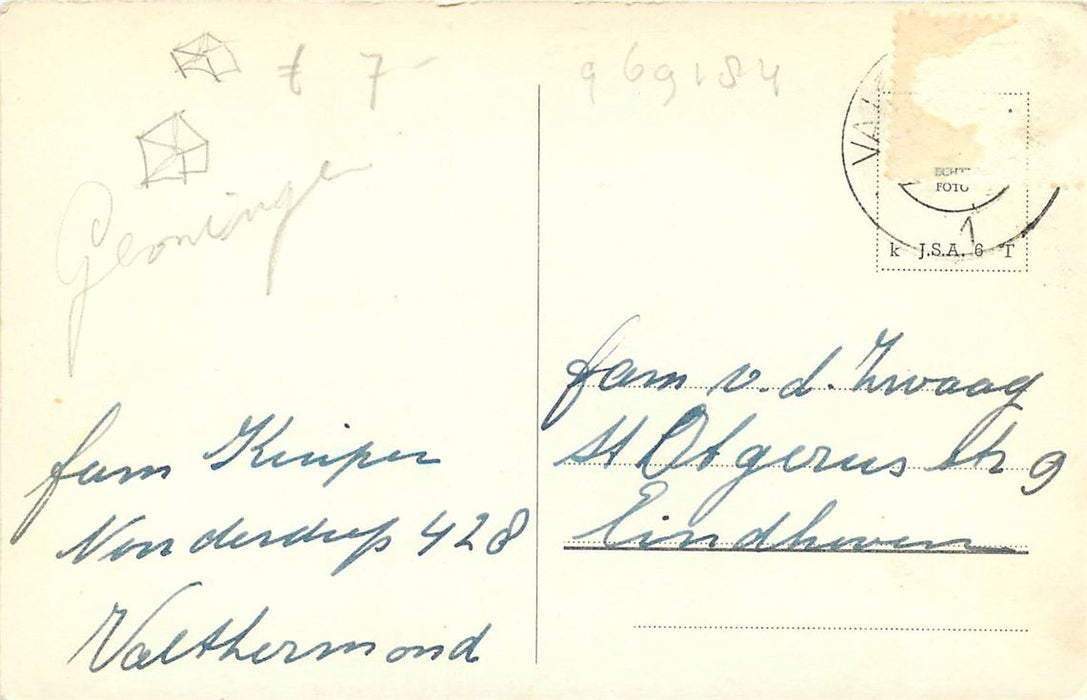 7-
969184
Groningen
VA
ECHT
FOTO
k J.S.A. 6 T
fam v.d. Zwaag
St Otgerus str 9
Eindhoven
fam Kuiper
Nonderdiep 428
Valthermond